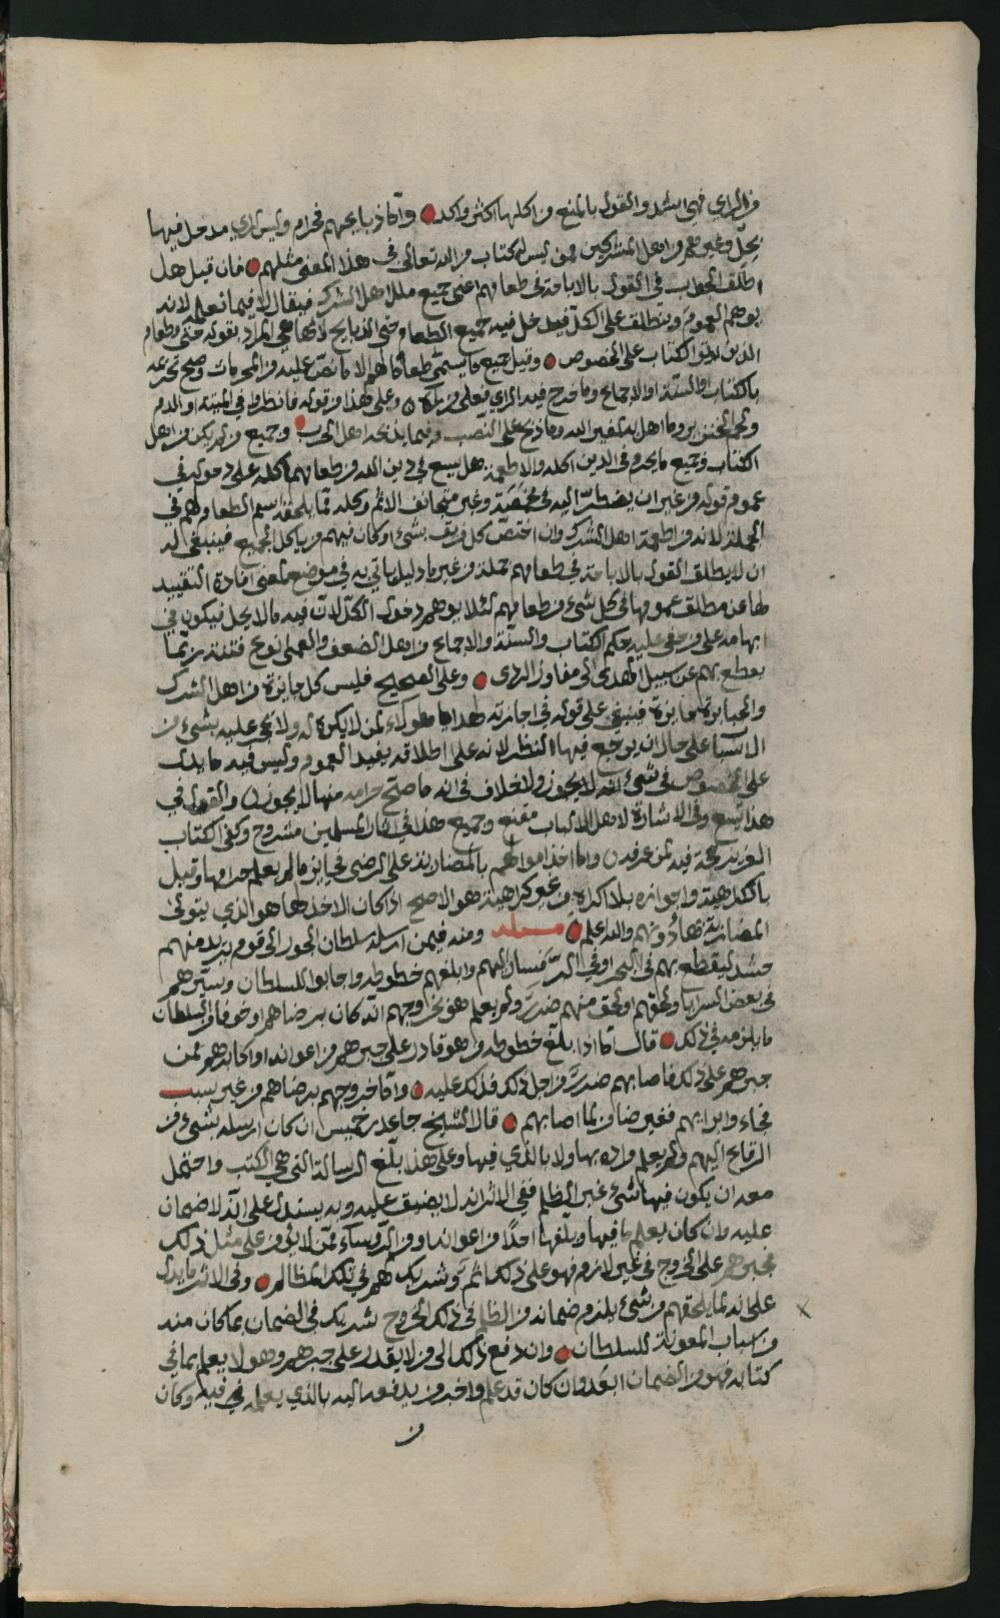 من الراي فهي اشد والقول بالمنع من اكلها اكثر واكد وأما ذبايحهم فحرام وليس للراي مدخل فيها
بحل وغيرهم من اهل المشركين ممن ليس له كتاب من الله تعالى في هذا المعنى مثلهم فان قيل هل
يطلق الجواب في القول بالاباحة في طعامهم اعني جميع ملل اهل الشرك فيقال لا فيما نعلم لانه
يوهم العموم وينطلق على الكل فيدخل فيه جميع الطعام حتى الذبايح لانها هي المراد بقوله حتى وطعام
الذين اوتوا الكتاب على الخصوص وقيل جميع ما يسمى طعاما لهم الا ما نص عليه من المحرمات وصح تحريمه
بالكتاب او السنة او الاجماع وما خرج فيه الراي فعلى ذلك وعلى هذا من قوله فانظروا في الميتة او الدم
ولحم الخنزير وما اهل به لغير الله وما ذبح على النصب وفيما يذبحه اهل الحرب وجميع من لم يكن من اهل
الكتاب وجميع ما يحرم في الدين اكله والاطعمة هل يسع في دين الله من طعامهم اكله على دخوله في
عموم قوله من غير ان يضطر اليه في مخمصة وغير متجانف لاثم وكله مما يلحقه اسم الطعام ولهم في
الجملة لانه من اطعمة اهل الشرك وان اختص كل فريق بشيء او كان فيهم من ياكل الجميع فينبغي له
ان لا يطلق القول بالاباحة في طعامهم جملة من غير ما دليل ياتي به في موضع لمعنى افادة التقييد
لها عن مطلق عمومها في كل شيء من طعامهم لئلا يوهم دخول الكل لان فيه ما لا يحل فيكون في
ابهامه على من خفي عليه حكم الكتاب والسنة والاجماع من اهل الضعف والعمى نوع فتنة ربما
يقطع بهم عن سبيل الهدى الى مفاوز الردى وعلى الصحيح فليس كل جايزة من اهل الشرك
والجبابرة جايزة فينبغي على قوله في اجازته لهدايا هؤلاء لمن لا يكره له ولا يجبى عليه بشيء من
الاشيا على حال ان يرجع فيها النظر لانه على اطلاقه يفيد العموم وليس فيه ما يدل
على خصوص في شيء انه لا يجوز ولا خلاف في انه ما صح حرامه منها لا يجوز والقول في
هذا يتسع وفي الاشارة لاهل الالباب مقنع وجميع هذا في اثار المسلمين مشروح وكفى الكتاب
العزيز حجة فيه لمن عرفه واما اخذ اموالهم بالمضاربة على الرضى فجايز ما لم يعلم حرامها وقيل
بالكراهية واجوازه بلا كراهة من غير كراهية هو الاصح اذا كان الاخذ لها هو الذي يتولى
المضاربة بها دونهم والله اعلم مسئلة ومنه فيمن ارسله سلطان الجور الى قوم يريد منهم
حشد ليقطع بهم في البحر او في البر فسار اليهم وابلغهم خطوطه واجابوا للسلطان وسيرهم
في بعض السرايا ولحقهم او لحق منهم ضرر ولم يعلم هو خروجهم انه كان برضاهم او خوفا من السلطان
ما يلزمه في ذلك قال اما اذا بلغ خطوطه وهو قادر على جبرهم من اعوانه او اكابرهم فمن
جبرهم على ذلك فاصابهم ضرر من اجل ذلك فذلك عليه واما خروجهم برضاهم من غير سبب
فجاء وابرايهم فغير ضامن لما اصابهم قال الشيخ جاعد بن خميس ان كان ارسله بشيء من
الرقاع اليهم ولم يعلم مراده بها ولا بالذي فيها وعلى هذا بلغ الرسالة التي هي الكتب واحتمل
معه ان يكون فيها شيء غير الظلم ففي الاثر انه لا يضيق عليه وبه يستدل على انه لا ضمان
عليه وان كان يعلم ما فيها وبلغها احدا من اعوانه او من الروساء ممن لا يؤمن على مثل ذلك
فجبرهم على الخروج في غير لازم فهو على ذلك اثم وشريك لهم في تلك المظالم وفي الاثر ما يدل
على انه لما يلحقهم من شيء يلزم ضمانه من الظلم في ذلك الخروج شريك في الضمان بما كان منه
من اسباب المعونة للسلطان وان دفع ذلك الى من لا يقدر على جبرهم وهو لا يعلم بما في
كتابه فهو من الضمان ابعد وان كان قد علم واخبر من يدفعه اليه بالذي يعلمه في فيه وكان
من